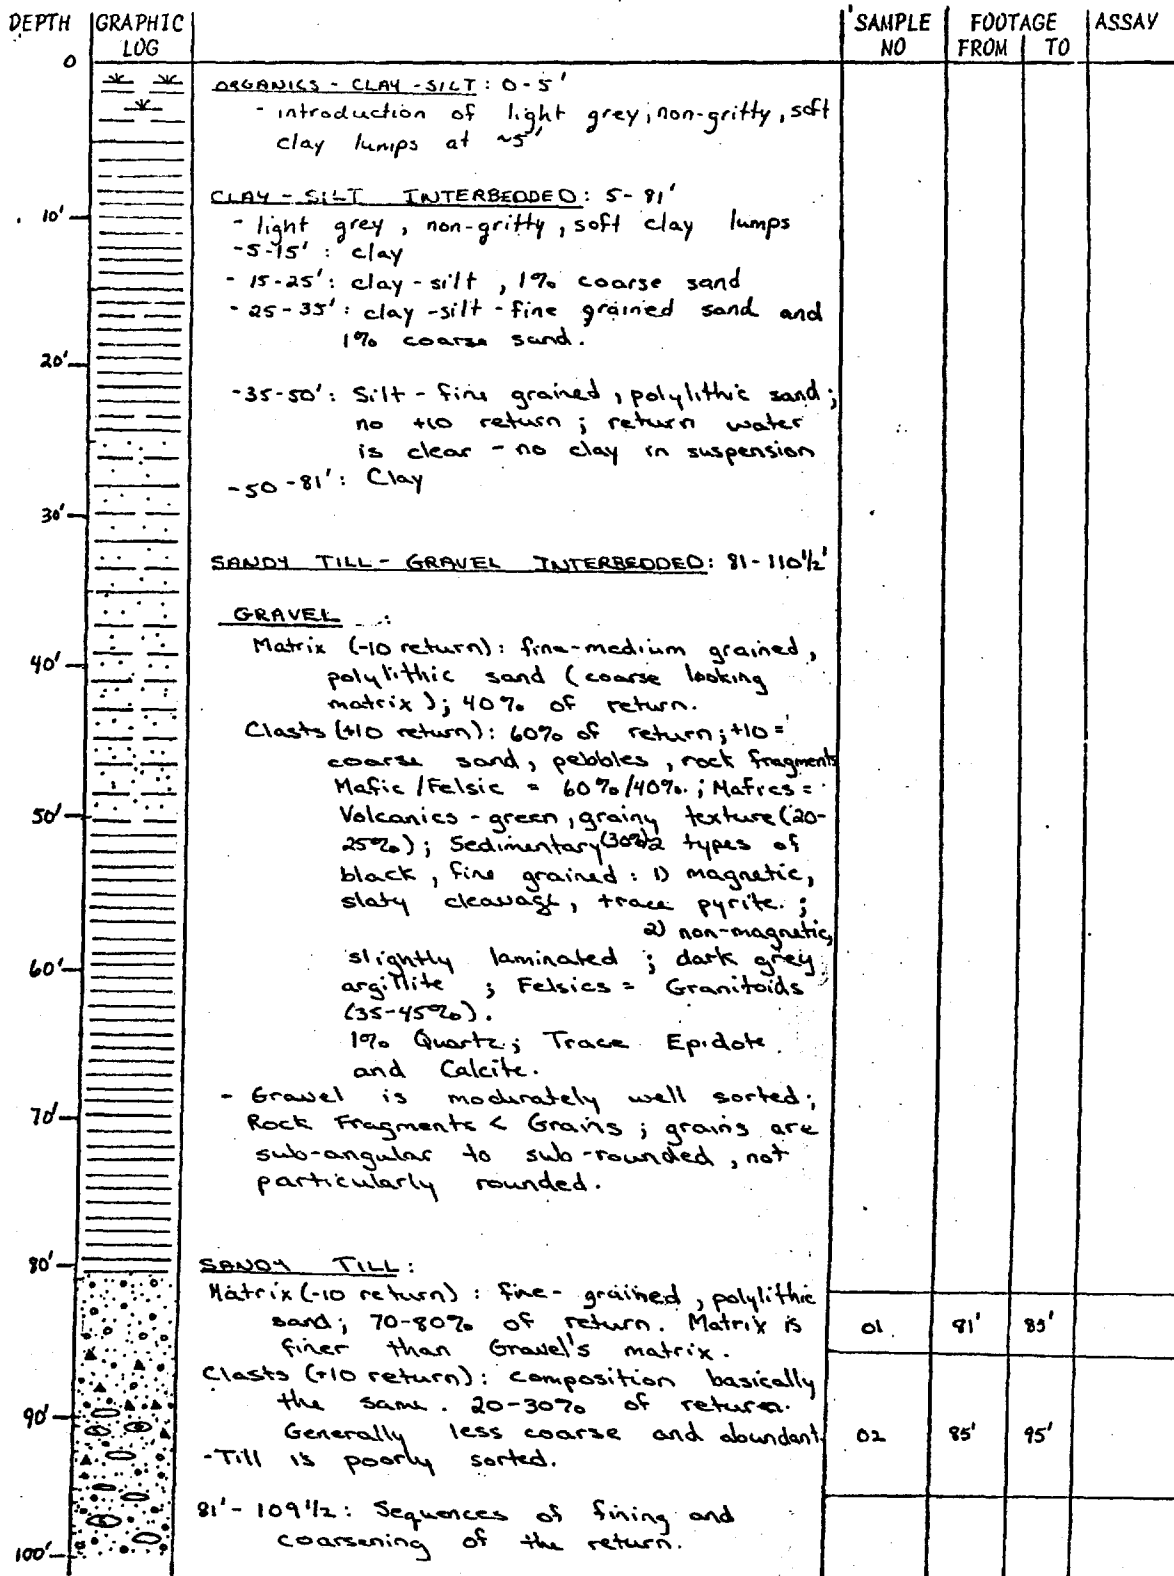 DEPTH GRAPHIC LOG SAMPLE NO FOOTAGE FROM TO ASSAY
0
ORGANICS - CLAY - SILT : 0-5'
- introduction of light grey, non-gritty, soft
clay lumps at ~5'
CLAY - SILT INTERBEDDED : 5-81'
10'
- light grey, non-gritty, soft clay lumps
-5-15' : clay
- 15-25' : clay - silt, 1% coarse sand
- 25-35' : clay - silt - fine grained sand and
1% coarse sand.
20'
-35-50' : Silt - fine grained, polylithic sand ;
no +10 return ; return water
is clear - no clay in suspension
-50-81' : Clay
30'
SANDY TILL - GRAVEL INTERBEDDED : 81-110 1/2'
GRAVEL :
Matrix (-10 return) : fine-medium grained,
40'
polylithic sand (coarse looking
matrix) ; 40% of return.
Clasts (+10 return) : 60% of return ; +10 =
coarse sand, pebbles, rock fragments
Mafic / Felsic = 60%/40%. ; Mafics =
50'
Volcanics - green, grainy texture (20-
25%) ; Sedimentary (30%) 2 types of
black, fine grained : 1) magnetic,
slaty cleavage, trace pyrite. ;
2) non-magnetic,
slightly laminated ; dark grey
60'
argillite ; Felsics = Granitoids
(35-45%).
1% Quartz ; Trace Epidote
and Calcite.
- Gravel is moderately well sorted ;
70'
Rock Fragments < Grains ; grains are
sub-angular to sub-rounded, not
particularly rounded.
80'
SANDY TILL :
Matrix (-10 return) : fine-grained, polylithic
sand ; 70-80% of return. Matrix is
01 81' 85'
finer than Gravel's matrix.
Clasts (+10 return) : composition basically
the same. 20-30% of return.
90'
Generally less coarse and abundant.
02 85' 95'
- Till is poorly sorted.
81' - 109 1/2 : Sequences of fining and
coarsening of the return.
100'